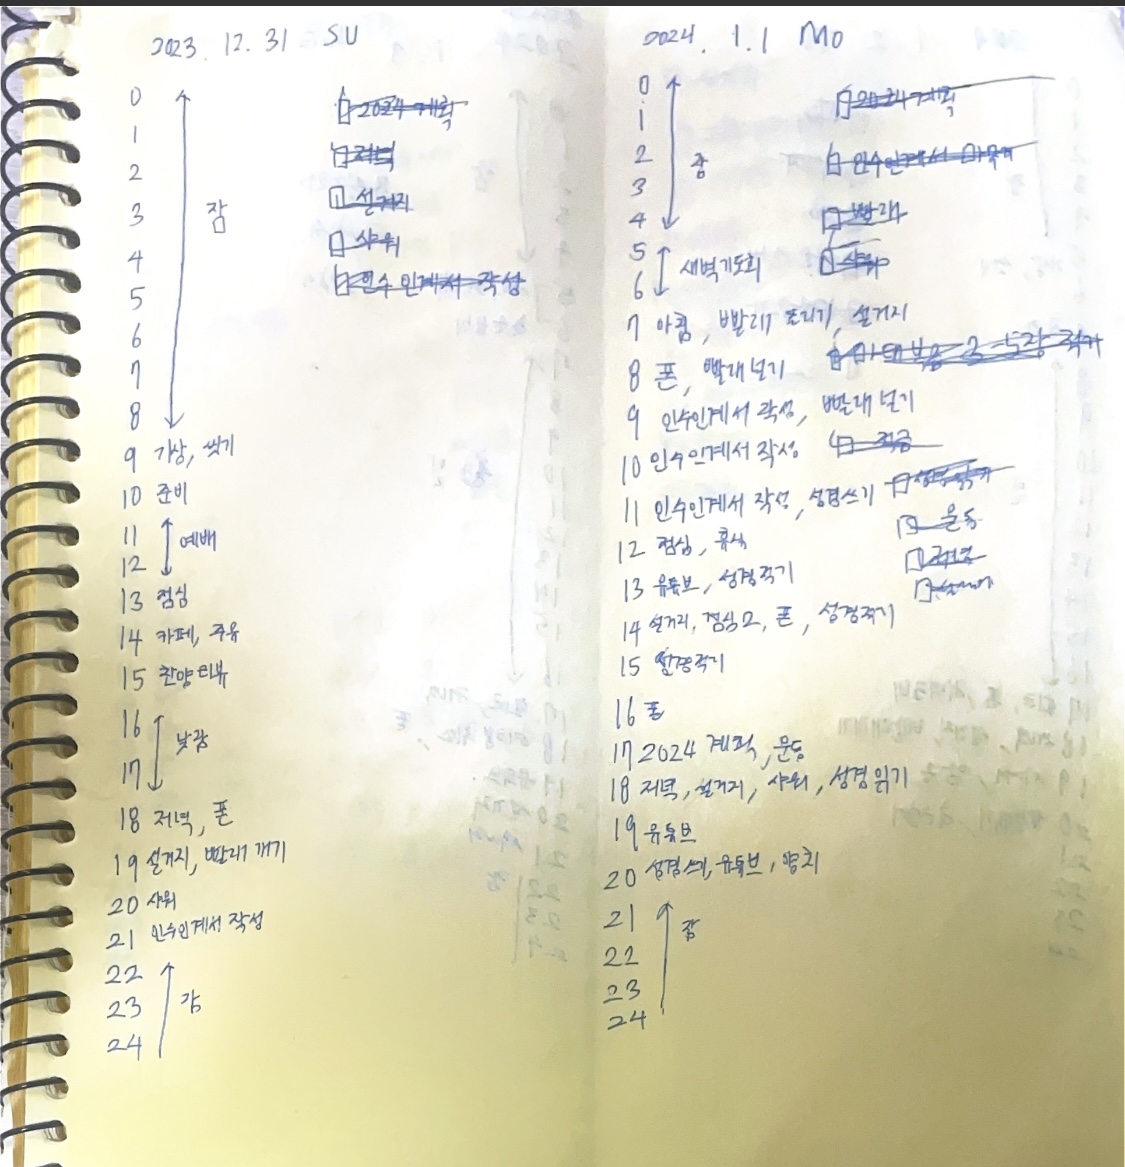 2023. 12. 31 SU
0
1
2
3 잠
4
5
6
7
8
9 기상, 씻기
10 준비
11
예배
12
13 점심
14 카페, 주유
15 찬양 리뷰
16
낮잠
17
18 저녁, 폰
19 설거지, 빨래 개기
20 샤워
21 인수인계서 작성
22
23 잠
24
□ 2024 계획
□ 저녁
□ 설거지
□ 샤워
□ 인수인계서 작성
2024. 1. 1 Mo
0
1
2 잠
3
4
5 새벽기도회
6
7 아침, 빨래 돌리기, 설거지
8 폰, 빨래 널기
9 인수인계서 작성, 빨래 널기
10 인수인계서 작성
11 인수인계서 작성, 성경쓰기
12 점심, 휴식
13 유튜브, 성경적기
14 설거지, 점심2, 폰, 성경적기
15 성경적기
16 폰
17 2024 계획, 운동
18 저녁, 설거지, 샤워, 성경 읽기
19 유튜브
20 성경쓰기, 유튜브, 양치
21 잠
22
23
24
□ 2024 계획
□ 인수인계서 마무리
□ 빨래
□ 샤워
□ 마태복음 3-5장 적기
□ 적금
□ 성경 읽기
□ 운동
□ 저녁